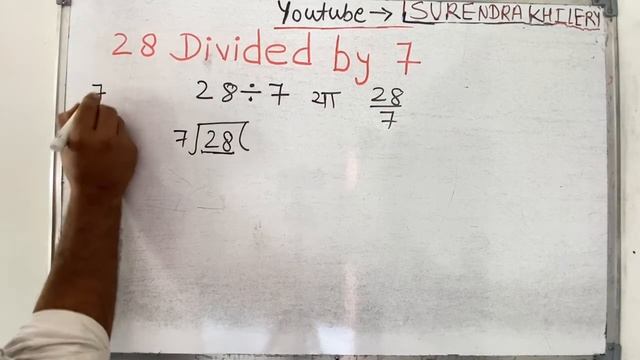 Youtube → SURENDRA KHILERY
28 Divided by 7
7
28 ÷ 7 या 28/7
7)28(